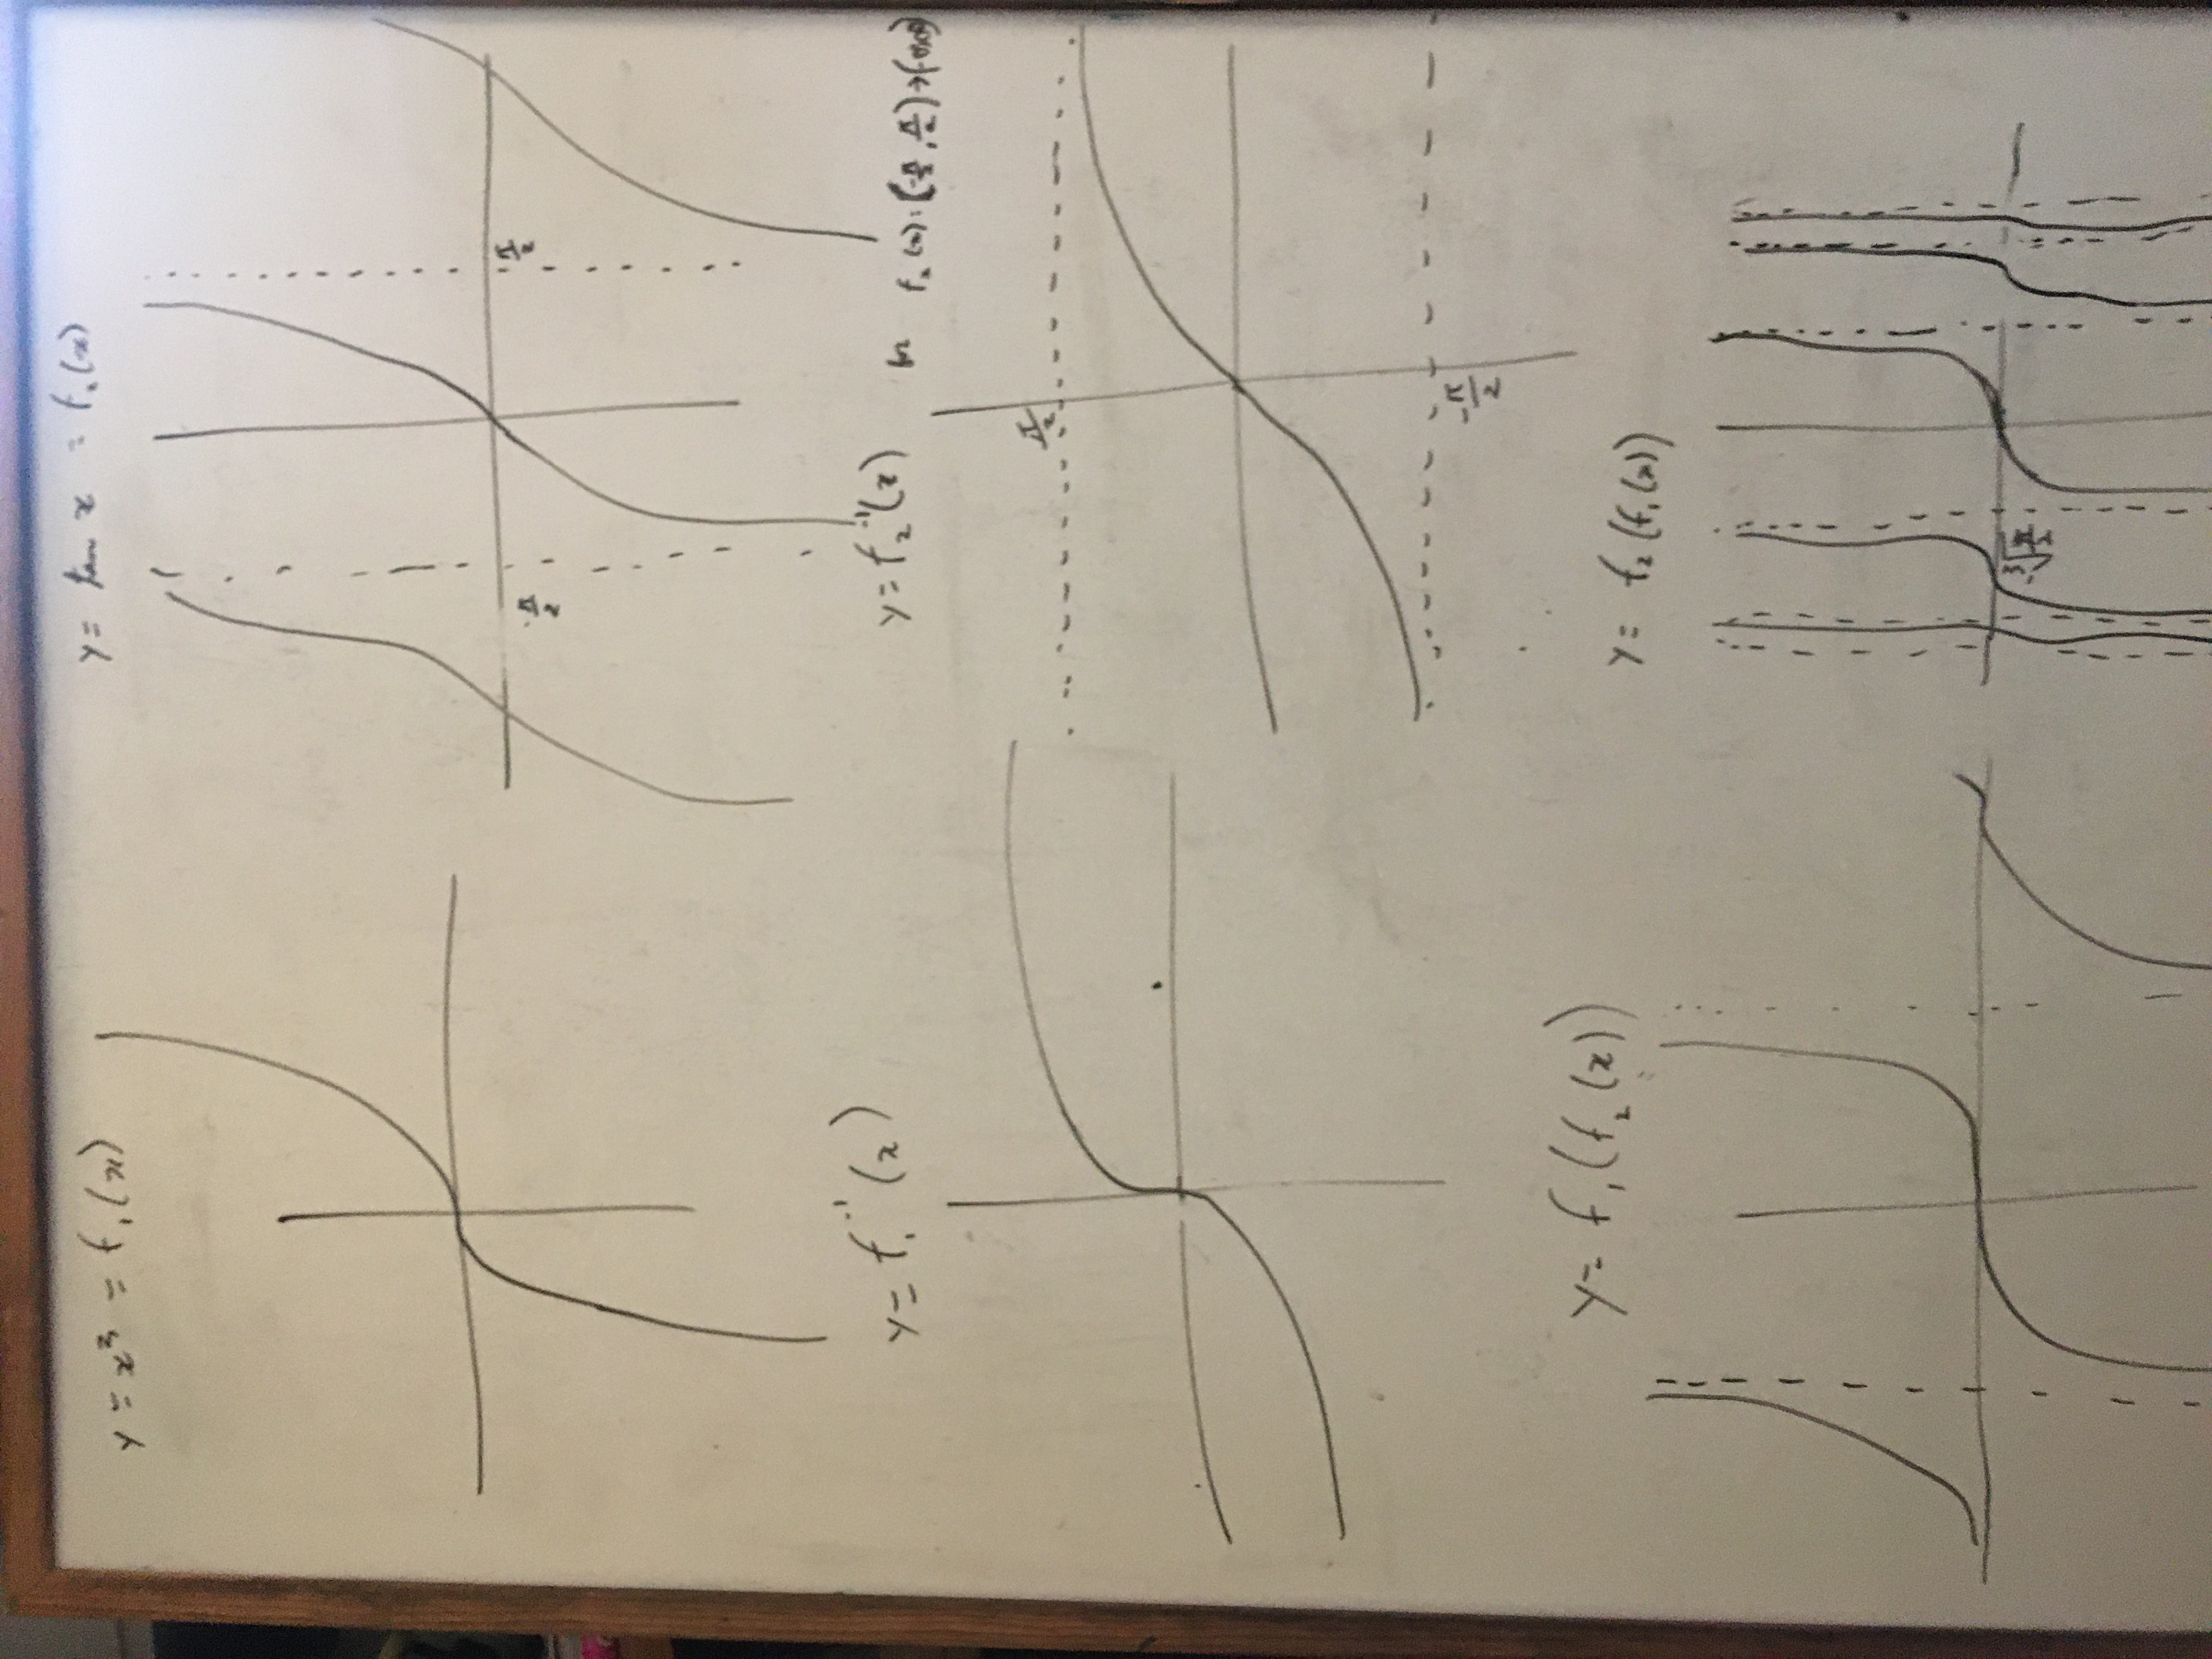 y = x³ = f₁(x)
y = tan x = f₂(x)
-π/2
π/2
y = f₁⁻¹(x)
y = f₂⁻¹(x) for f₂(x): (-π/2, π/2) → (-∞,∞)
π/2
-π/2
y = f₁(f₂(x))
y = f₂(f₁(x))
-∛(π/2)